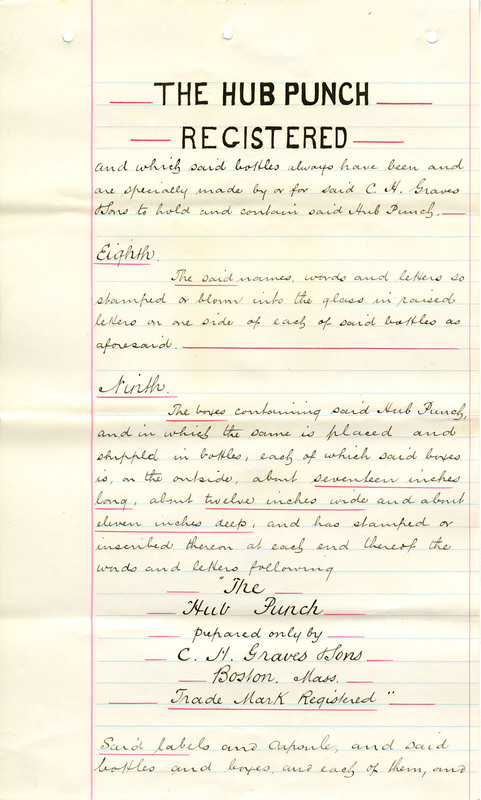 THE HUB PUNCH
REGISTERED
and which said bottles always have been and
are specially made by or for said C. H. Graves
& Sons to hold and contain said Hub Punch.
Eighth.
The said names, words and letters so
stamped or blown into the glass in raised
letters on one side of each of said bottles as
aforesaid.
Ninth.
The boxes containing said Hub Punch,
and in which the same is placed and
shipped in bottles, each of which said boxes
is, on the outside, about seventeen inches
long, about twelve inches wide and about
eleven inches deep, and has stamped or
inscribed thereon at each end thereof the
words and letters following
"The
Hub Punch
prepared only by
C. H. Graves & Sons
Boston, Mass.
Trade Mark Registered"
Said labels and capsule, and said
bottles and boxes, and each of them, and